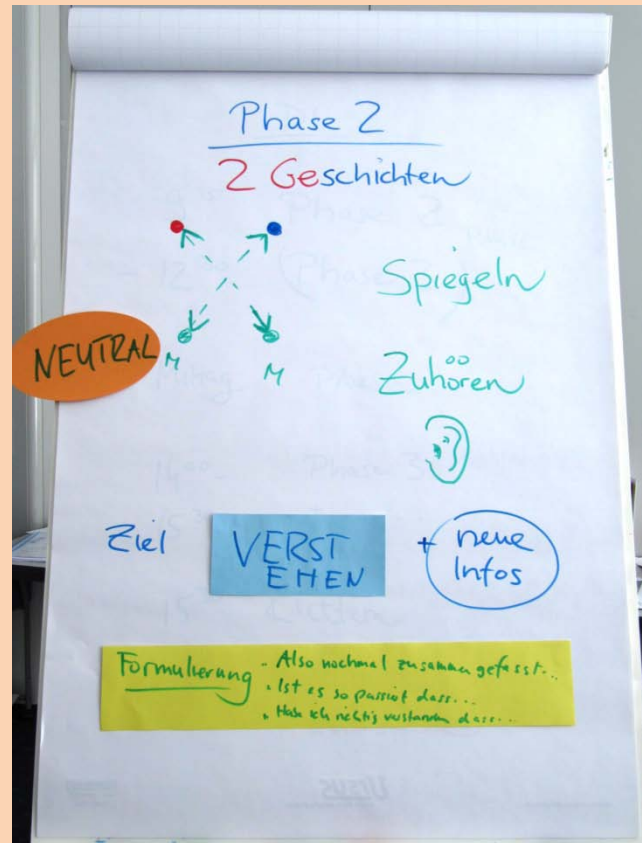 Phase 2
2 Geschichten
Spiegeln
NEUTRAL
M
M
Zuhören
Ziel
VERST
EHEN
+ neue
Infos
Formulierung
- Also nochmal zusammen gefasst...
• Ist es so passiert dass...
• Habe ich richtig verstanden dass...